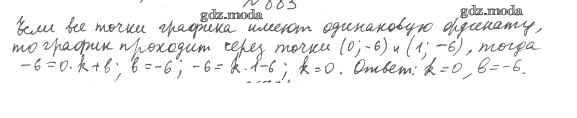 gdz.moda
Если все точки графика имеют одинаковую ординату,
gdz.moda gdz.moda
то график проходит через точки (0; -6) и (1; -6), тогда
-6=0·k+b; b=-6; -6=k·1-6; k=0. Ответ: k=0, b=-6.